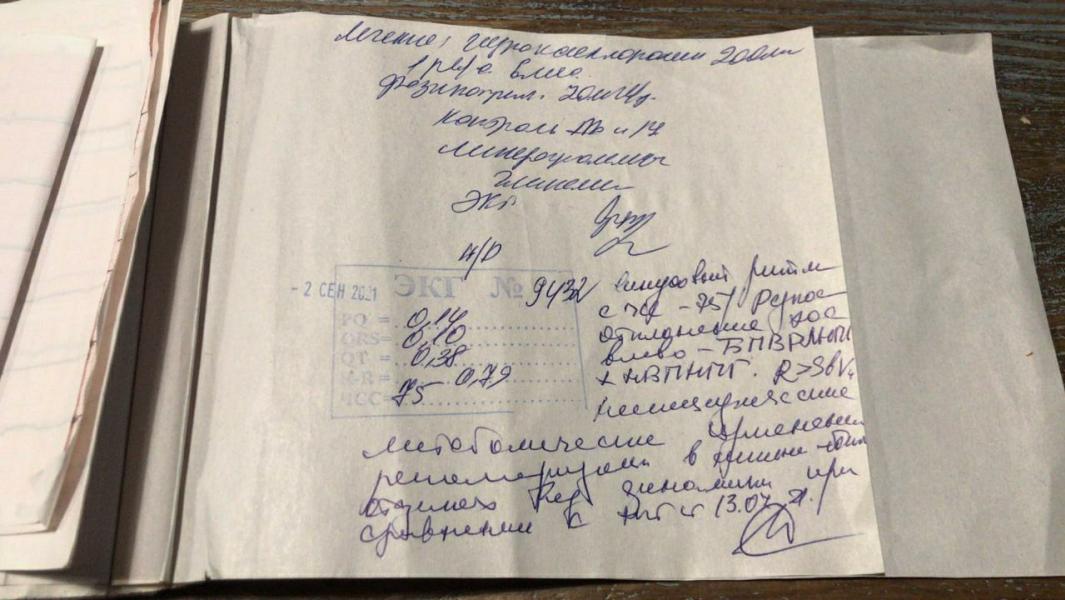 Лечение: гидроксихлорохин 200мг
1 р/д
фозиноприл. 20мг 1/д.
контроль АД и
липидограммы
гликемии
ЭКГ
Н/Р
- 2 СЕН 2021 ЭКГ № 9432
PQ = 0,14
QRS= 0,10
QT = 0,38
R-R = 0,79
ЧСС= 75
синусовый ритм
с чсс - 75/ Резкое
отклонение ЭОС
влево - БПВРЛНПГ
+ НБПНПГ. R>SвV
неспецифические
метаболические изменения
реполяризации в
отделах без динамики при
сравнении с ЭКГ от 13.07.21.